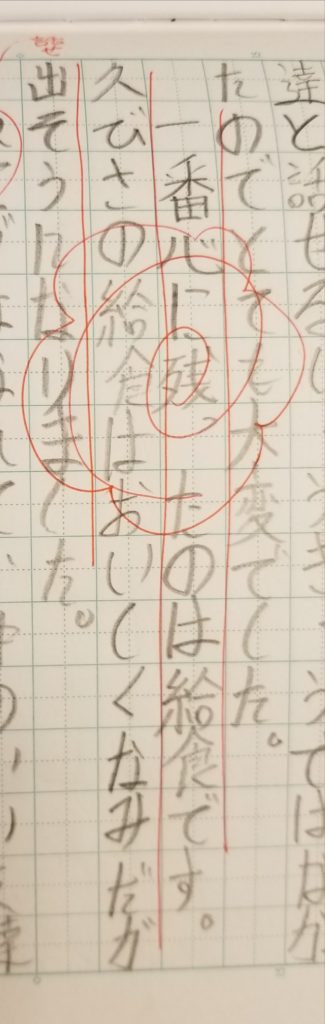 達と話せるし
たのでとても大変でした。
一番心に残ったのは給食です。
久びさの給食はおいしくなみだが
出そうになりました。